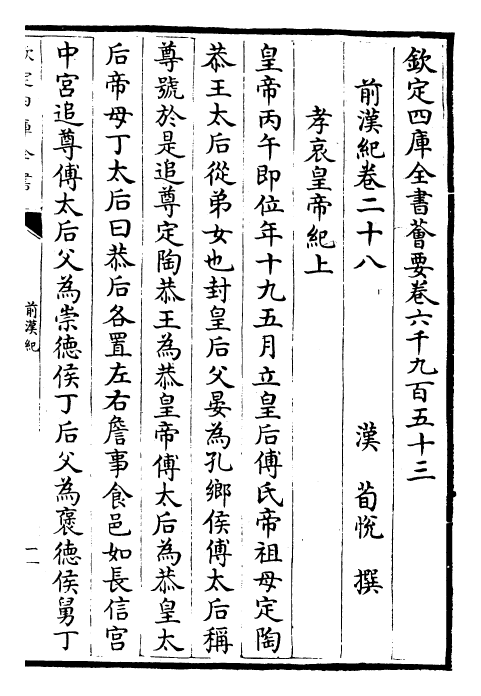 欽定四庫全書薈要卷六千九百五十三
前漢紀卷二十八
漢 荀悅 撰
孝哀皇帝紀上
皇帝丙午即位年十九五月立皇后傅氏帝祖母定陶
恭王太后從弟女也封皇后父晏為孔鄉侯傅太后稱
尊號於是追尊定陶恭王為恭皇帝傅太后為恭皇太
后帝母丁太后曰恭后各置左右詹事食邑如長信宮
中宮追尊傅太后父為崇德侯丁后父為褒德侯舅丁
欽定四庫全書
前漢紀
一